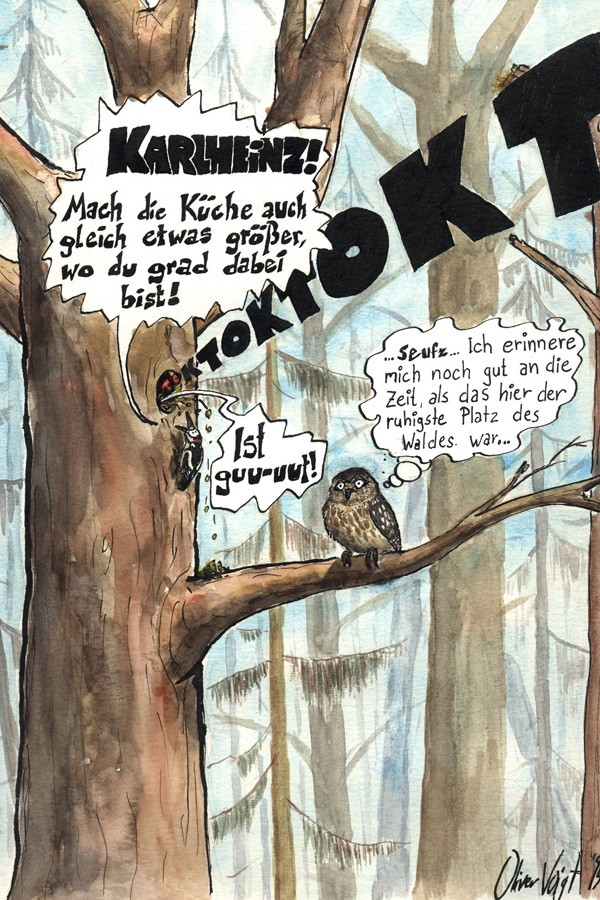 KARLHEINZ!
Mach die Küche auch
gleich etwas größer,
wo du grad dabei
bist!
TOKTOKTOKT
Ist
guu-uut!
...seufz... Ich erinnere
mich noch gut an die
Zeit, als das hier der
ruhigste Platz des
Waldes war...
Oliver Voigt